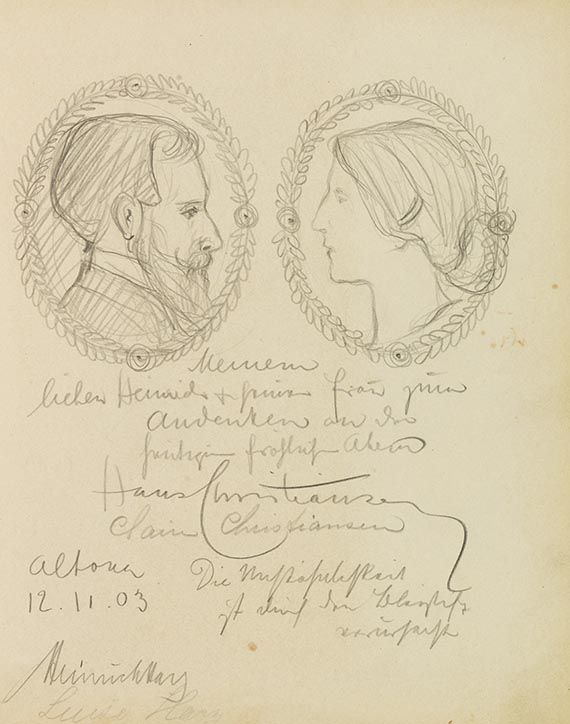 Meinem
lieben Heinrich + seiner Frau zum
Andenken an den
heutigen fröhlichen Abend
Hans Christiansen
Claire Christiansen
Altona
12.11.03
Die
ist durch den Bleistift
verursacht
Heinrich
Luise